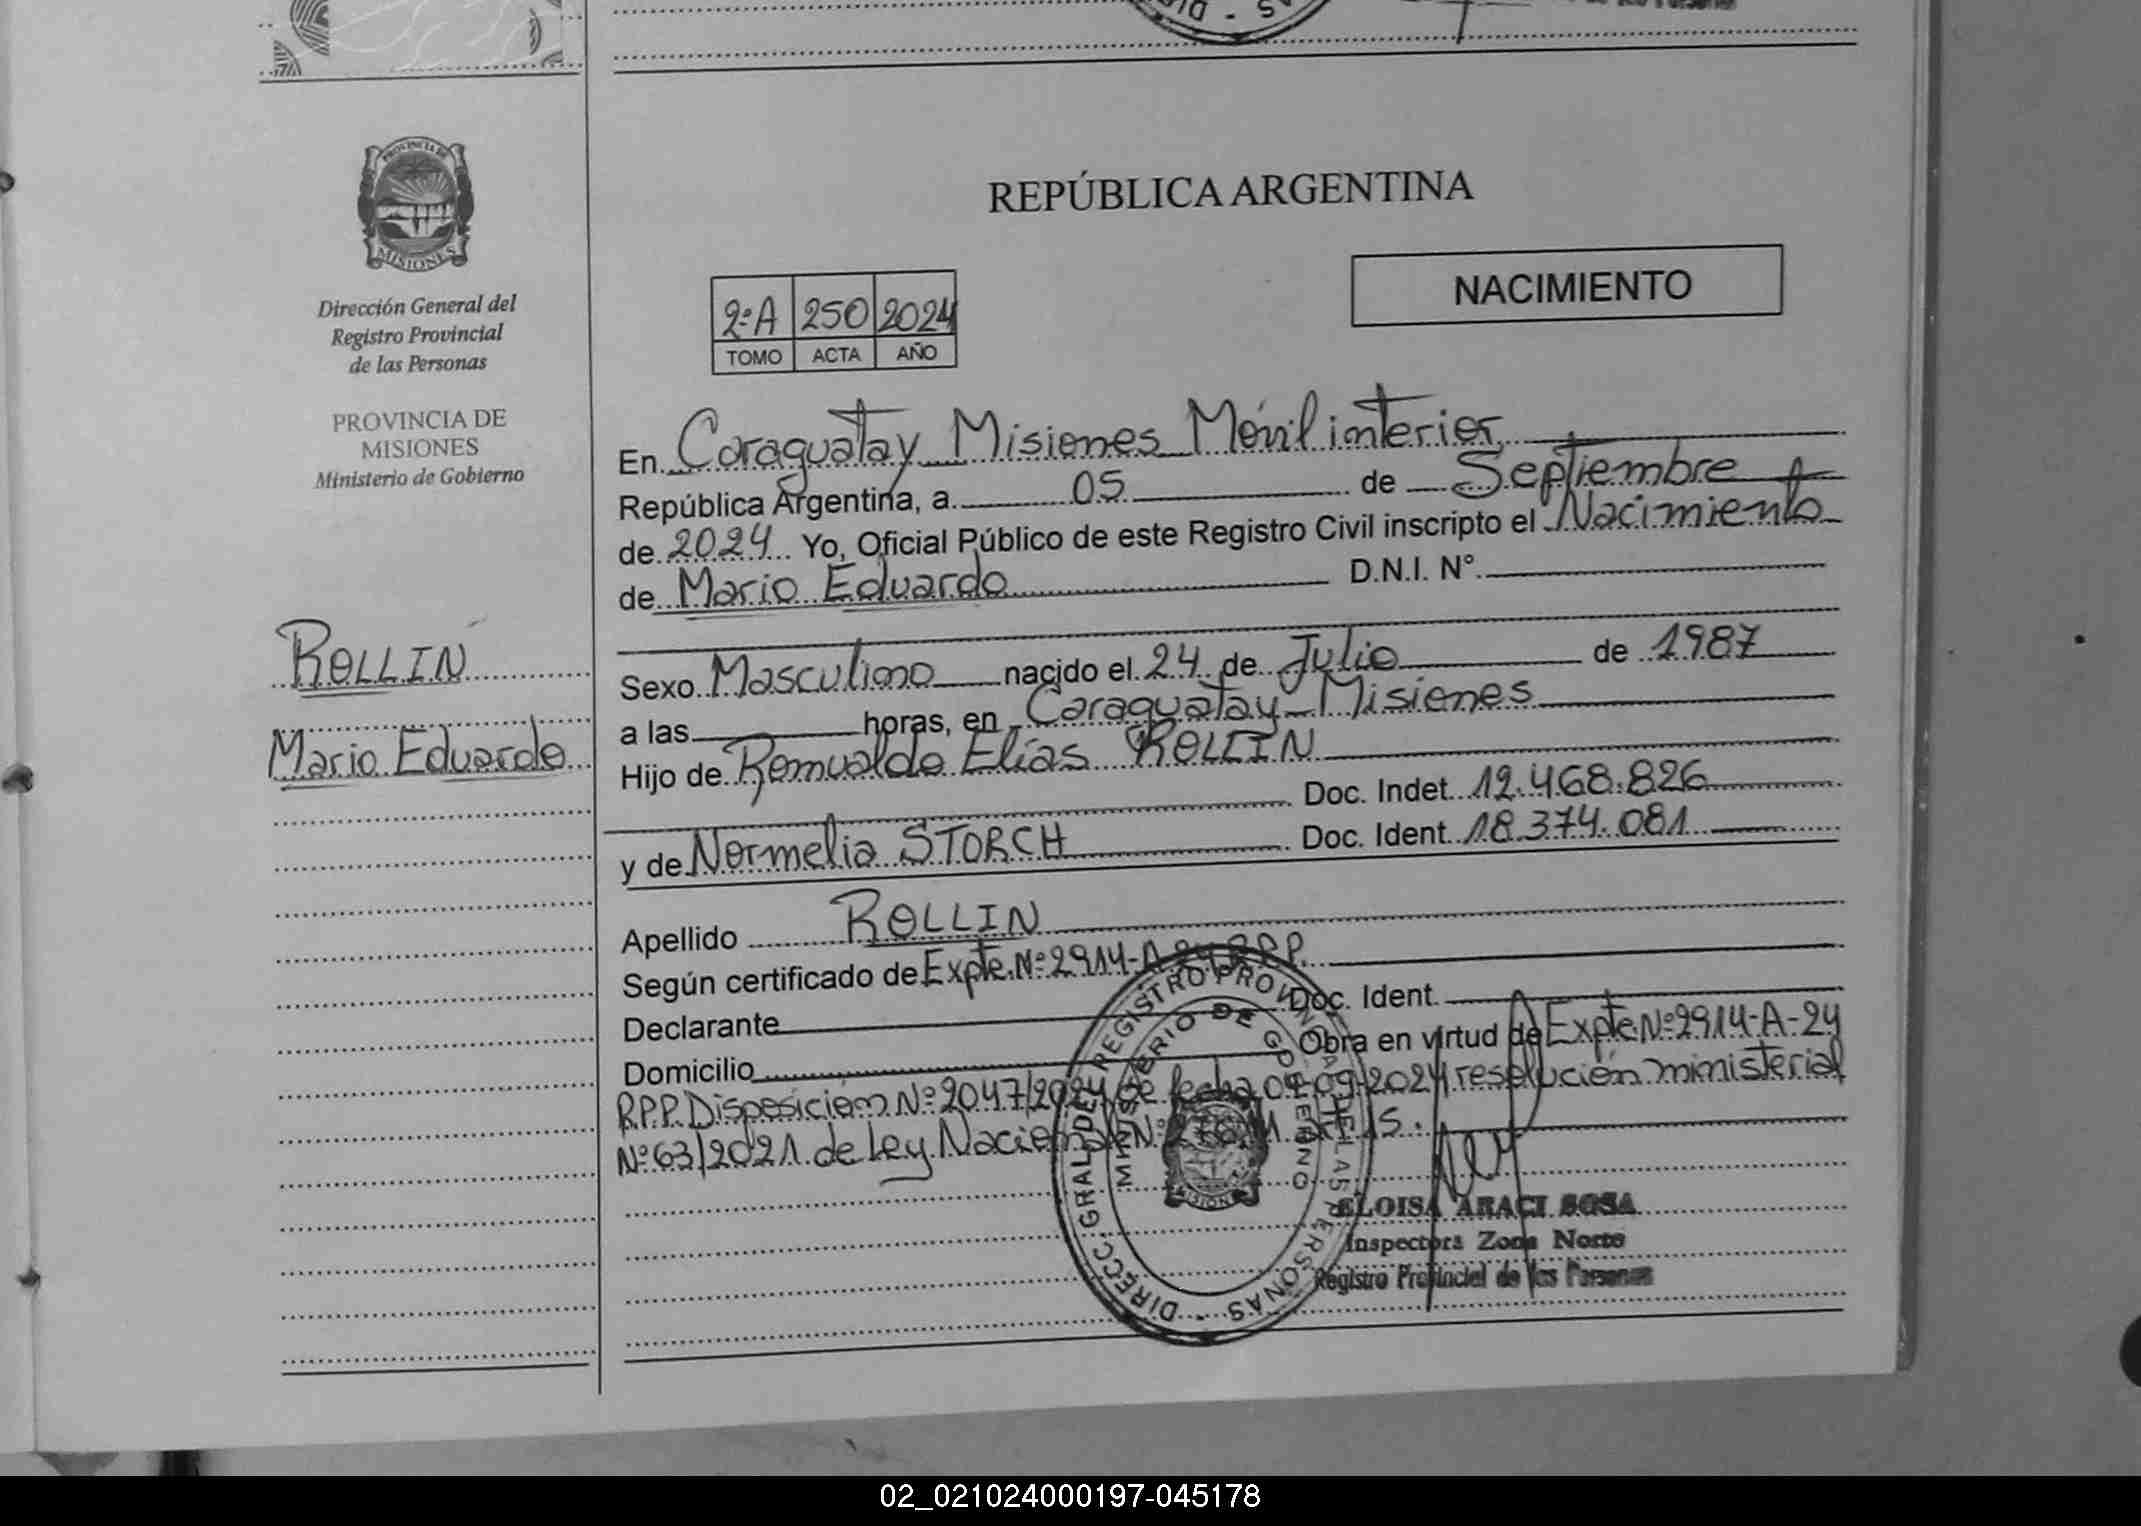 REPÚBLICA ARGENTINA
PROVINCIA DE
MISIONES
Dirección General del
Registro Provincial
de las Personas
PROVINCIA DE
MISIONES
Ministerio de Gobierno
ROLLIN
Mario Eduardo
2ºA 250 2024
TOMO ACTA AÑO
NACIMIENTO
En Caraguatay Misiones Móvil interior
República Argentina, a 05 de Septiembre
de 2024 Yo, Oficial Público de este Registro Civil inscripto el Nacimiento
de Mario Eduardo D.N.I. Nº
Sexo Masculino nacido el 24 de Julio de 1987
a las horas, en Caraguatay - Misiones
Hijo de Romualdo Elías ROLLIN
Doc. Indet. 12.468.826
y de Normelia STORCH Doc. Ident. 18.374.081
Apellido ROLLIN
Según certificado de Expte. Nº 2914-A-24 R.P.P.
Declarante Doc. Ident.
Domicilio Obra en virtud de Expte Nº 2914-A-24
R.P.P. Disposición Nº 2047/2024 de fecha 09-2024 resolución ministerial
Nº 63/2021 de Ley Nacional Nº
DIRECC. GRAL. DEL REGISTRO PROVINCIAL DE LAS PERSONAS
MINISTERIO DE GOBIERNO
MISIONES
ELOISA ARACI SOSA
Inspectora Zona Norte
Registro Provincial de las Personas
02_021024000197-045178